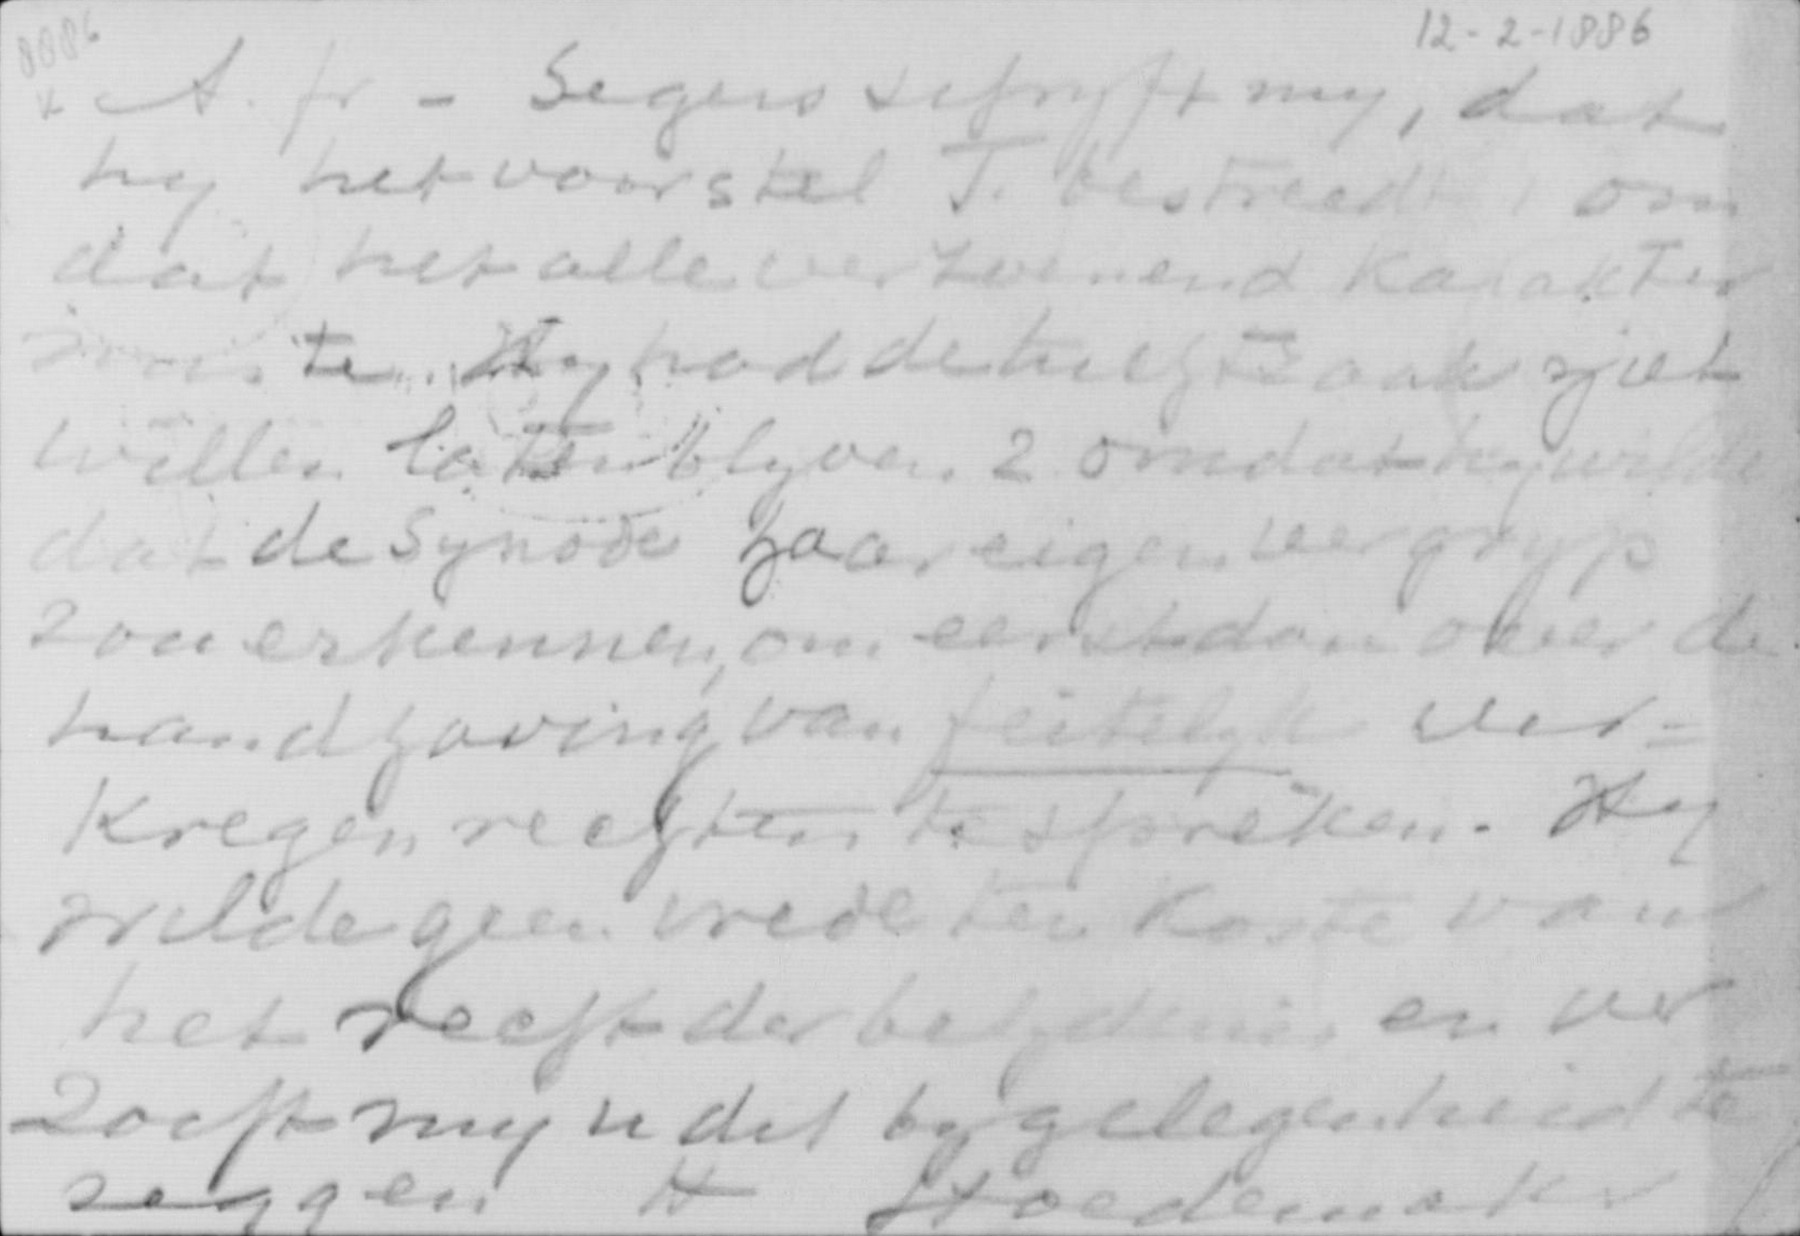 12-2-1886
8086
A. fr - Segers schryft my, dat
hy het voorstel T. bestreed, om
dat het alle verzoenend karakter
miste. Hy had de tuchtzaak
willen laten blyven 2 omdat hy wilde
dat de Synode haar eigen vergryp
zou erkennen, om eerst dan over de
handhaving van feitelyk ver=
kregen rechten te spreken. Hy
wilde geen vrede ten koste van
het recht der belydenis en ver
zocht my u dit by gelegenheid te
zeggen tt Hoedemaker